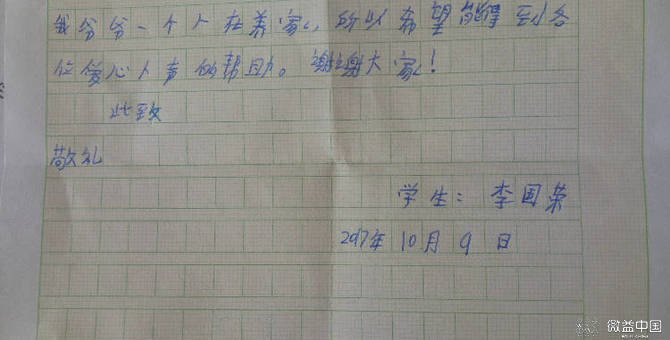 我爷爷一个人在养家，所以希望能得到各
位爱心人士的帮助。谢谢大家！
此致
敬礼
学生：李国荣
2017年10月9日
微益中国